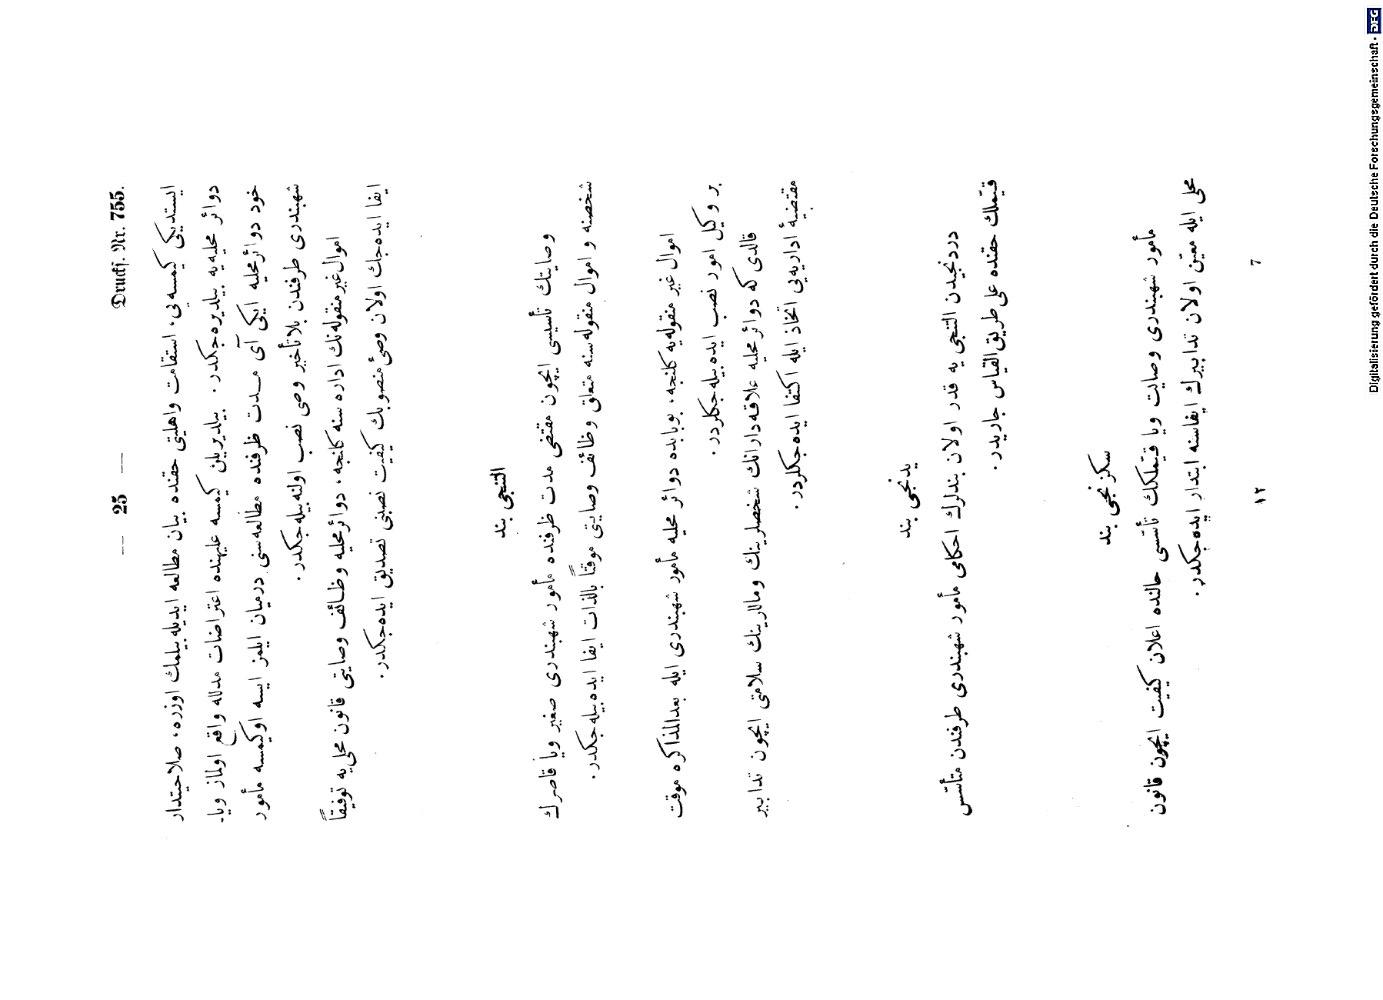 — 25 —
Drucks. Nr. 755.
ایستدیکی کیمسه‌یی، استقامت واهلیتی حقنده بیان مطالعه ایدیله بیلمك اوزره، صلاحیتدار
دوائر محلیه‌یه بیلدیره‌جکدر. بیلدیریلن کیمسه علیهنده اعتراضات مدلله واقع اولماز ویا-
خود دوائر محلیه ایکی آی مدت ظرفنده مطالعه‌سنی درمیان ایلمز ایسه اوکیمسه مأمور
شهبندری طرفندن بلا تأخیر وصی نصب اولنه‌بیله‌جکدر.
اموال غیر منقوله‌نك اداره‌سنه کلنجه، دوائر محلیه وظائف وصایتی قانون محلی‌یه توفیقاً
ایفا ایده‌جك اولان وصئ منصوبك کیفیت نصبنی تصدیق ایده‌جکدر.
التنجی بند
وصایتك تأسیسی ایچون مقتضی مدت ظرفنده مأمور شهبندری صغیر ویا قاصرك
شخصنه و اموال منقوله‌سنه متعلق وظائف وصایتی موقتاً بالذات ایفا ایده‌بیله‌جکدر.
اموال غیر منقوله‌یه کلنجه، بوبابده دوائر محلیه مأمور شهبندری ایله بعدالمذاکره موقت
بر وکیل امور نصب ایده‌بیله‌جکلردر.
قالدی که دوائر محلیه علاقه‌دارانك شخصلرینك ومالـلرینك سلامتی ایچون تدابیر
مقتضیهٔ اداریه‌یی اتخاذ ایله اکتفا ایده‌جکلردر.
یدنجی بند
دردنجیدن التنجی یه قدر اولان بندلرك احکامی مأمور شهبندری طرفندن متأسس
قیملك حقنده علی طریق القیاس جاریدر.
سکزنجی بند
مأمور شهبندری وصایت ویا قیملکك تأسسی حالنده اعلان کیفیت ایچون قانون
محلی ایله معین اولان تدابیرك ایفاسنه ابتدار ایده‌جکدر.
١٢
7
Digitalisierung gefördert durch die Deutsche Forschungsgemeinschaft - DFG